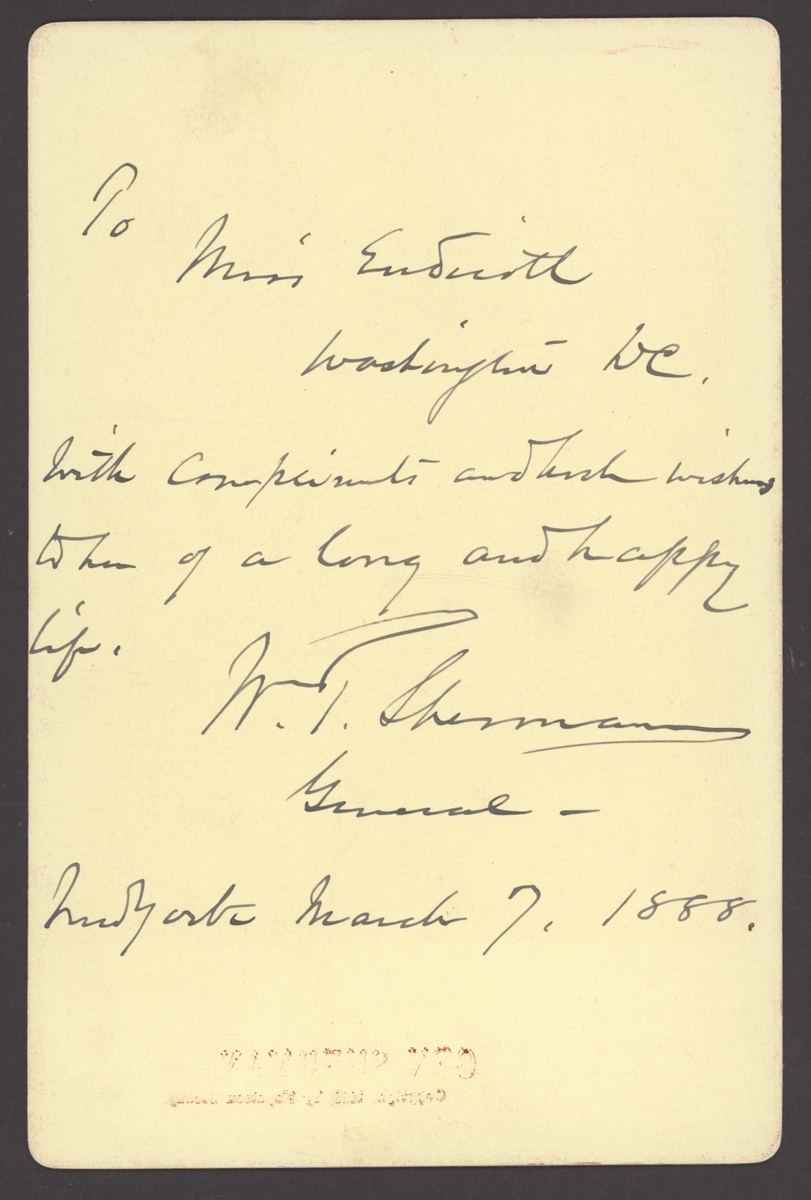 To
Miss Endicott
Washington DC.
With Compliments and best wishes
to her of a long and happy
life.
W. T. Sherman
General -
New York March 7, 1888.